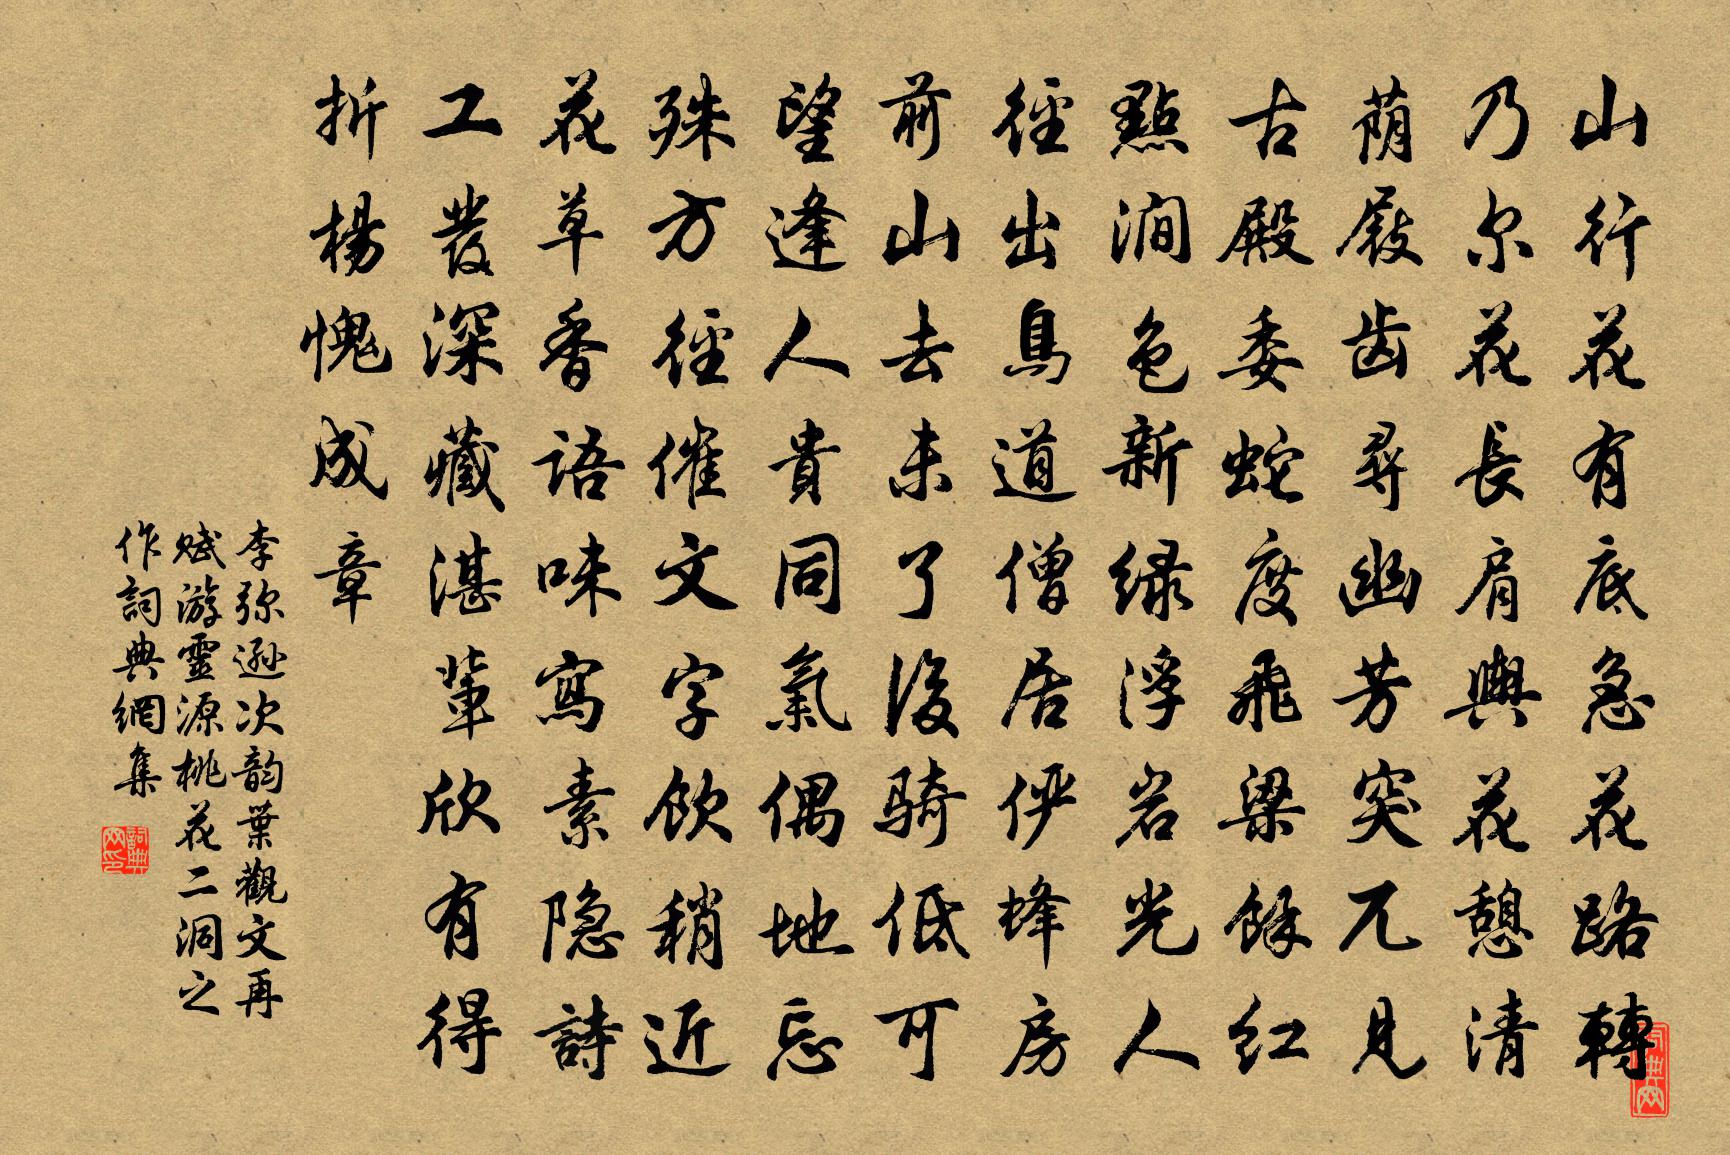 山行花有底急花路轉
乃尔花長肩輿花憩清
荫屐齿尋幽芳突兀見
古殿委蛇度飛梁餘红
點澗色新绿浮岩光人
徑出鳥道僧居俨蜂房
前山去未了後骑低可
望逢人貴同氣偶地忘
殊方徑催文字飲稍近
花草香語味寫素隐詩
工發深藏湛輩欣有得
折楊愧成章
李弥逊次韵葉觀文再
赋游靈源桃花二洞之
作詞典網集
詞典网印
詞典网